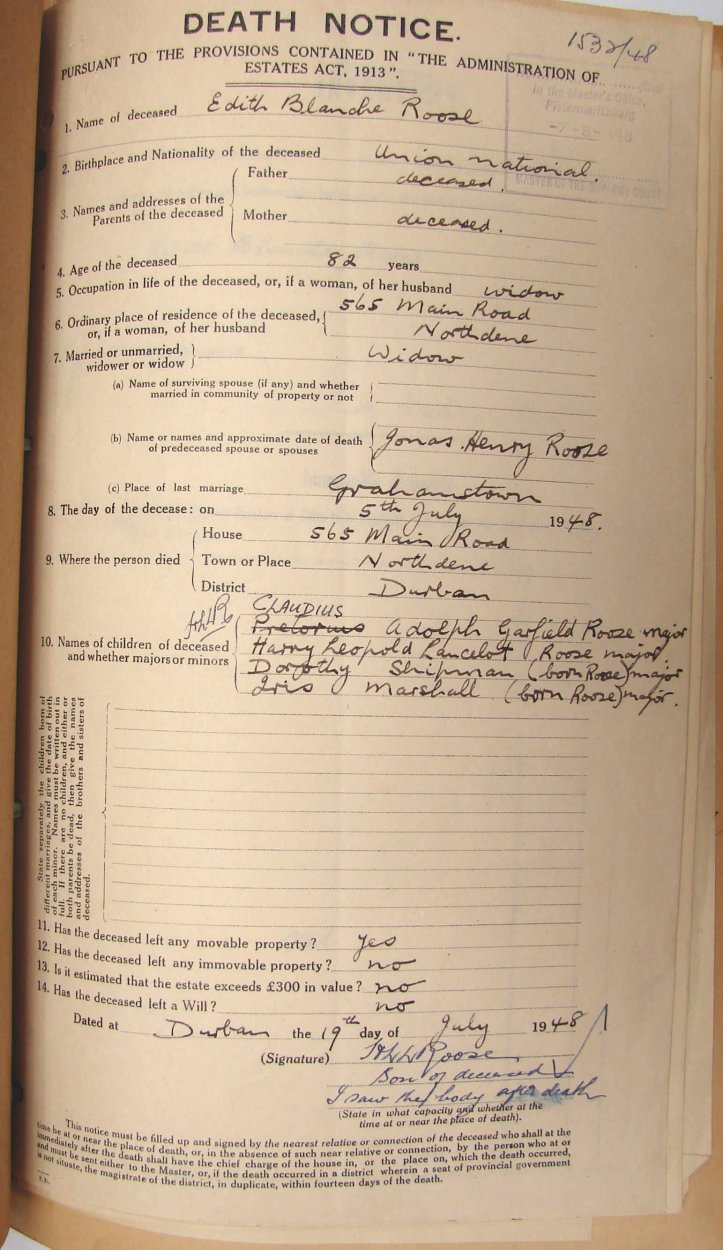 DEATH NOTICE.
1532/48
PURSUANT TO THE PROVISIONS CONTAINED IN "THE ADMINISTRATION OF
ESTATES ACT, 1913".
in the Master's Office,
Pietermaritzburg
MASTER OF THE SUPREME COURT
1. Name of deceased Edith Blanche Roose
2. Birthplace and Nationality of the deceased Union national.
3. Names and addresses of the Parents of the deceased
Father deceased.
Mother deceased.
4. Age of the deceased 82 years
5. Occupation in life of the deceased, or, if a woman, of her husband widow
6. Ordinary place of residence of the deceased, or, if a woman, of her husband
565 Main Road
Northdene
7. Married or unmarried, widower or widow Widow
(a) Name of surviving spouse (if any) and whether
married in community of property or not
(b) Name or names and approximate date of death
of predeceased spouse or spouses
Jonas Henry Roose
(c) Place of last marriage Grahamstown
8. The day of the decease: on 5th July 1948.
9. Where the person died
House 565 Main Road
Town or Place Northdene
District Durban
CLAUDIUS
10. Names of children of deceased
and whether majors or minors
Pretorius Adolph Garfield Roose major
Harry Leopold Lancelot Roose major.
Dorothy Shipman (born Roose) major
Iris Marshall (born Roose) major.
State separately the children born of
different marriages, and give the date of birth
of each minor. Names must be written out in
full. If there are no children, and either or
both parents be dead, then give the names
and addresses of the brothers and sisters of
deceased.
11. Has the deceased left any movable property? Yes
12. Has the deceased left any immovable property? no
13. Is it estimated that the estate exceeds £300 in value? no
14. Has the deceased left a Will? no
Dated at Durban the 19th day of July 1948
(Signature) HLL Roose
Son of deceased
I saw the body after death
(State in what capacity and whether at the
time at or near the place of death).
This notice must be filled up and signed by the nearest relative or connection of the deceased who shall at the
time be at or near the place of death, or, in the absence of such near relative or connection, by the person who at or
immediately after the death shall have the chief charge of the house in, or the place on, which the death occurred,
and must be sent either to the Master, or, if the death occurred in a district wherein a seat of provincial government
is not situate, the magistrate of the district, in duplicate, within fourteen days of the death.